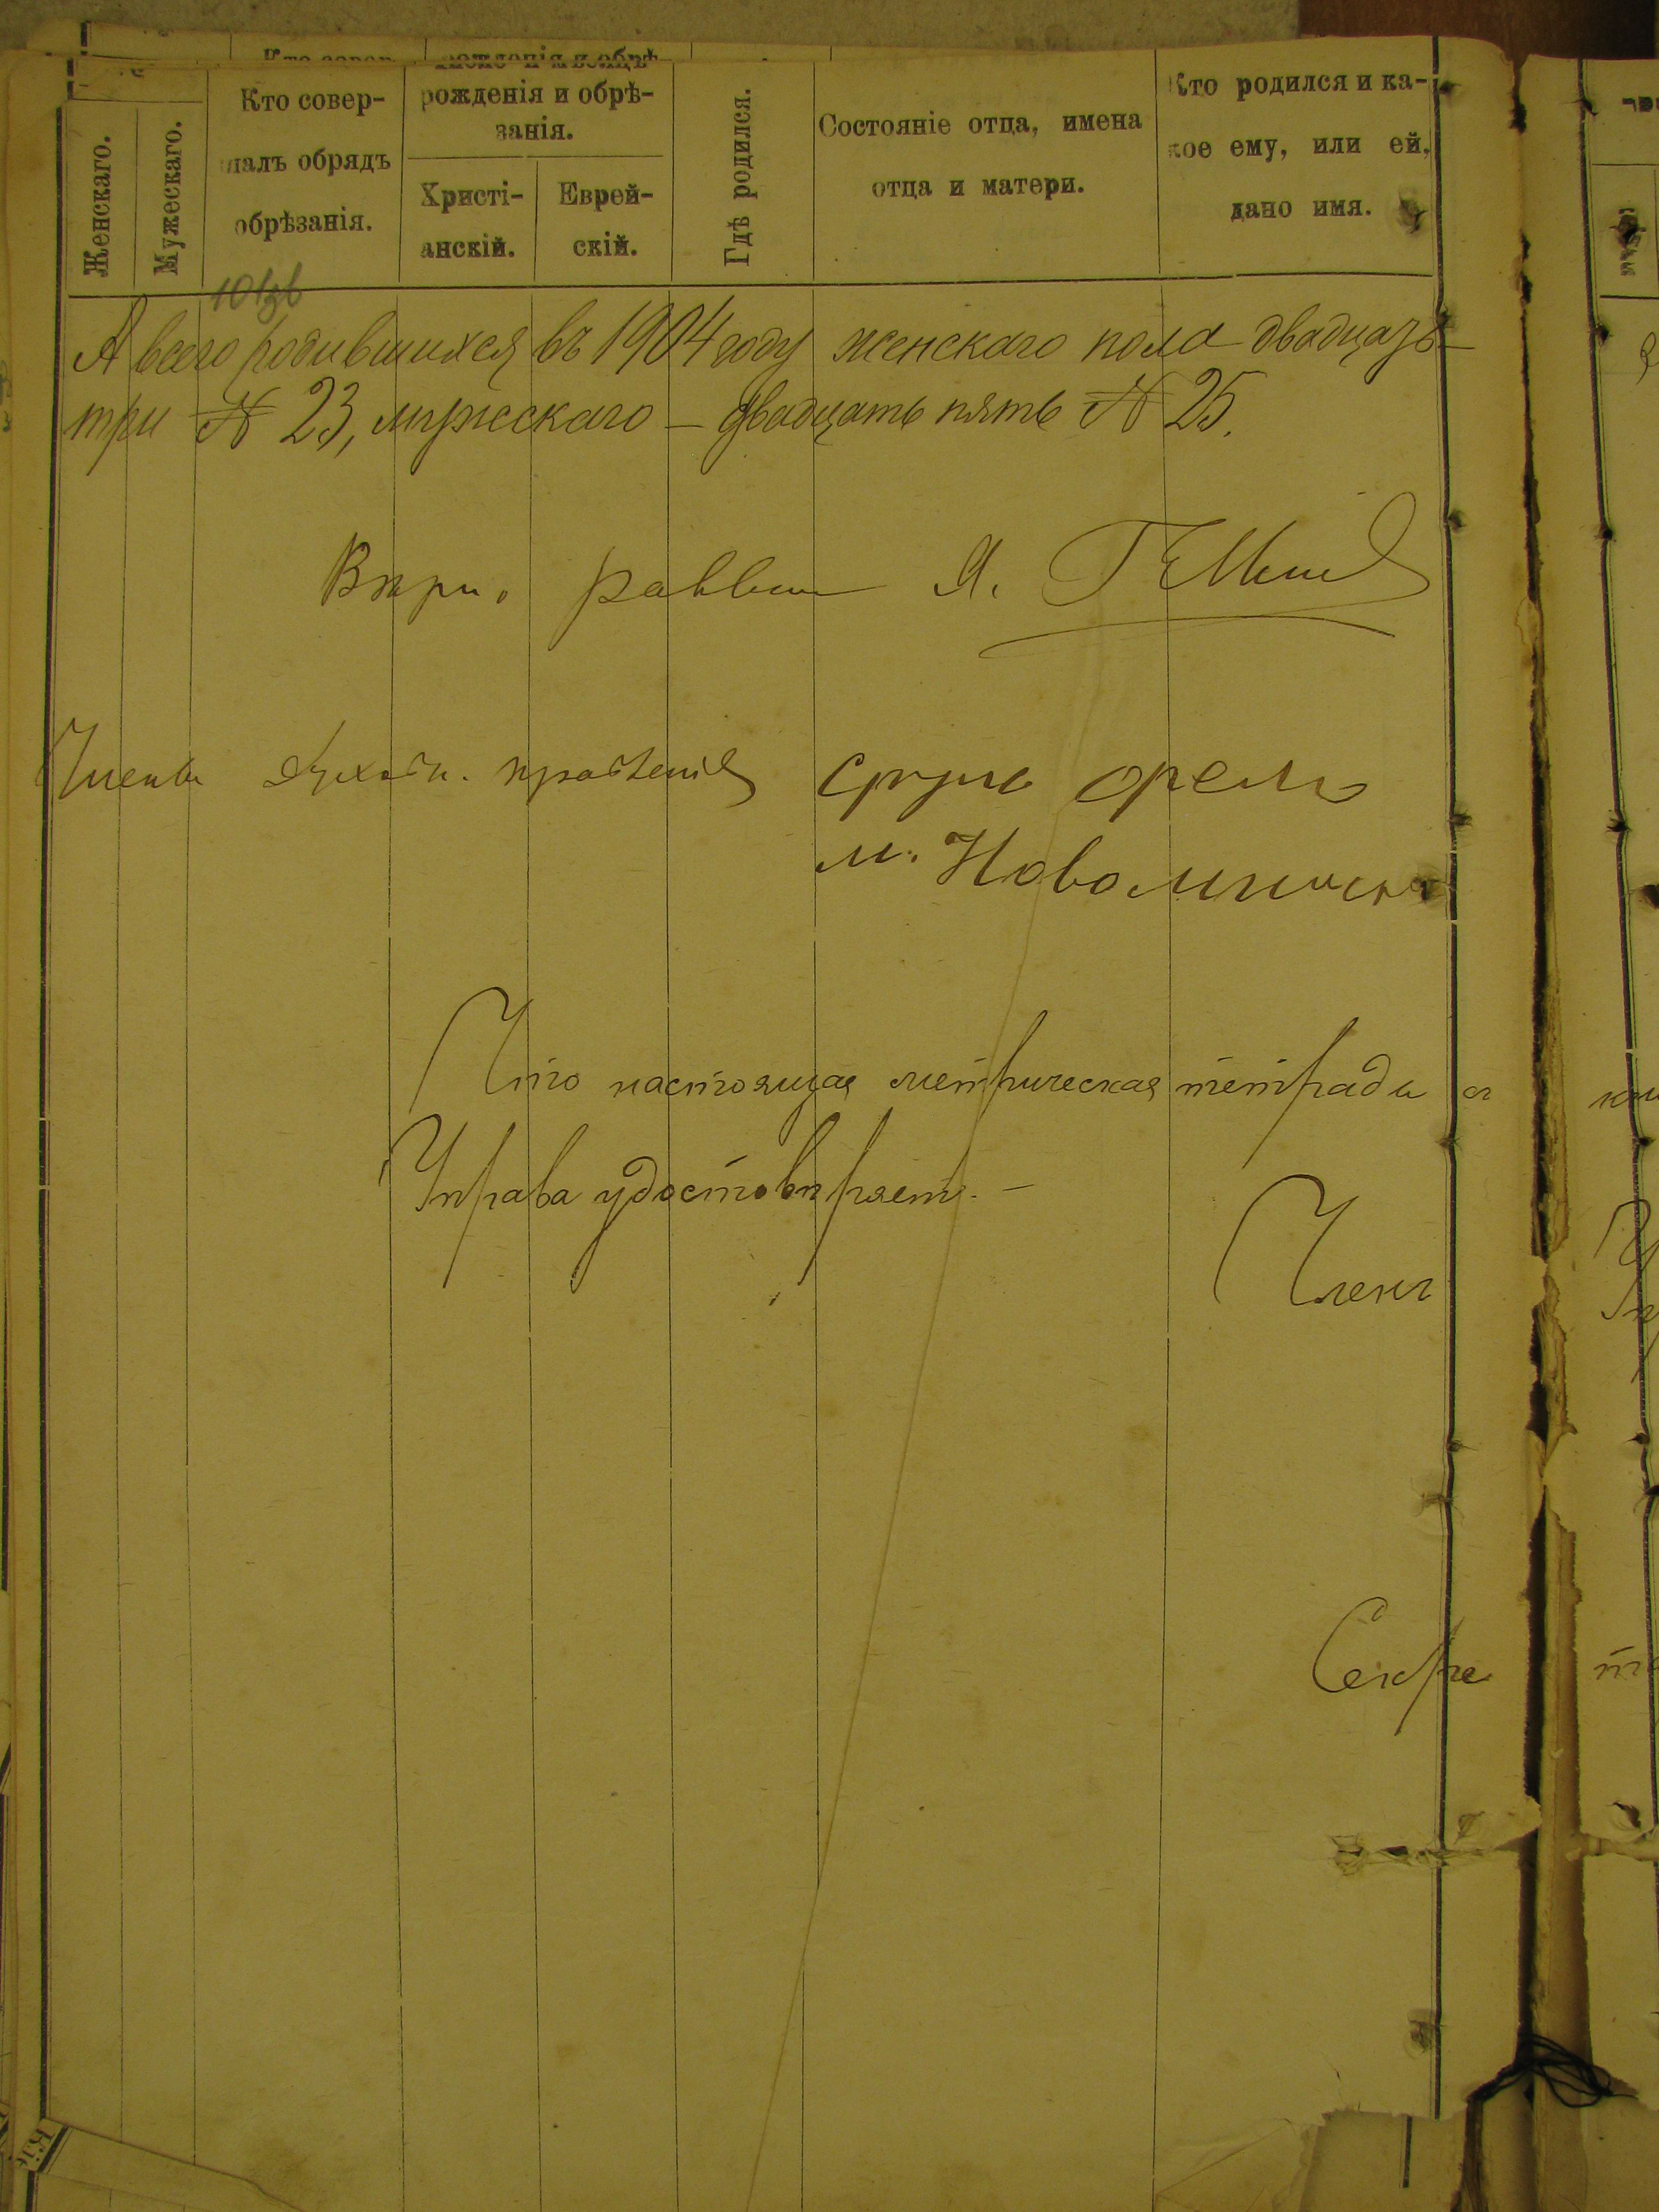 Женскаго.
Мужескаго.
Кто совер-
шалъ обрядъ
обрѣзанія.
рожденія и обрѣ-
занія.
Христі-
анскій.
Еврей-
скій.
Гдѣ родился.
Состояніе отца, имена
отца и матери.
Кто родился и ка-
кое ему, или ей,
дано имя.
А всего родившихся въ 1904 году женскаго пола двадцать
три № 23, мужескаго — двадцать пять № 25.
раввин Я.
Члены духовн. правленія
м.
Что настоящая метрическая тетрадь
Управа удостовѣряетъ. —
Членъ
Секре